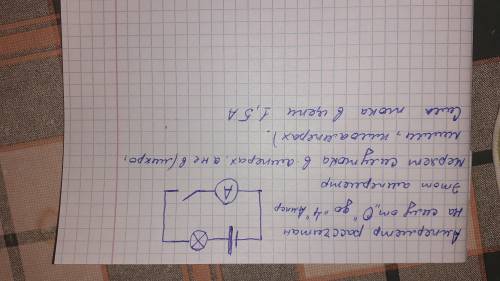 Амперметр рассчетан
на силу от "0" до "4" Ампер
Этот амперметр
меряет силу тока в амперах, а не в (микро,
милли, килоамперах).
Сила тока в цепи 1,5 А.
A